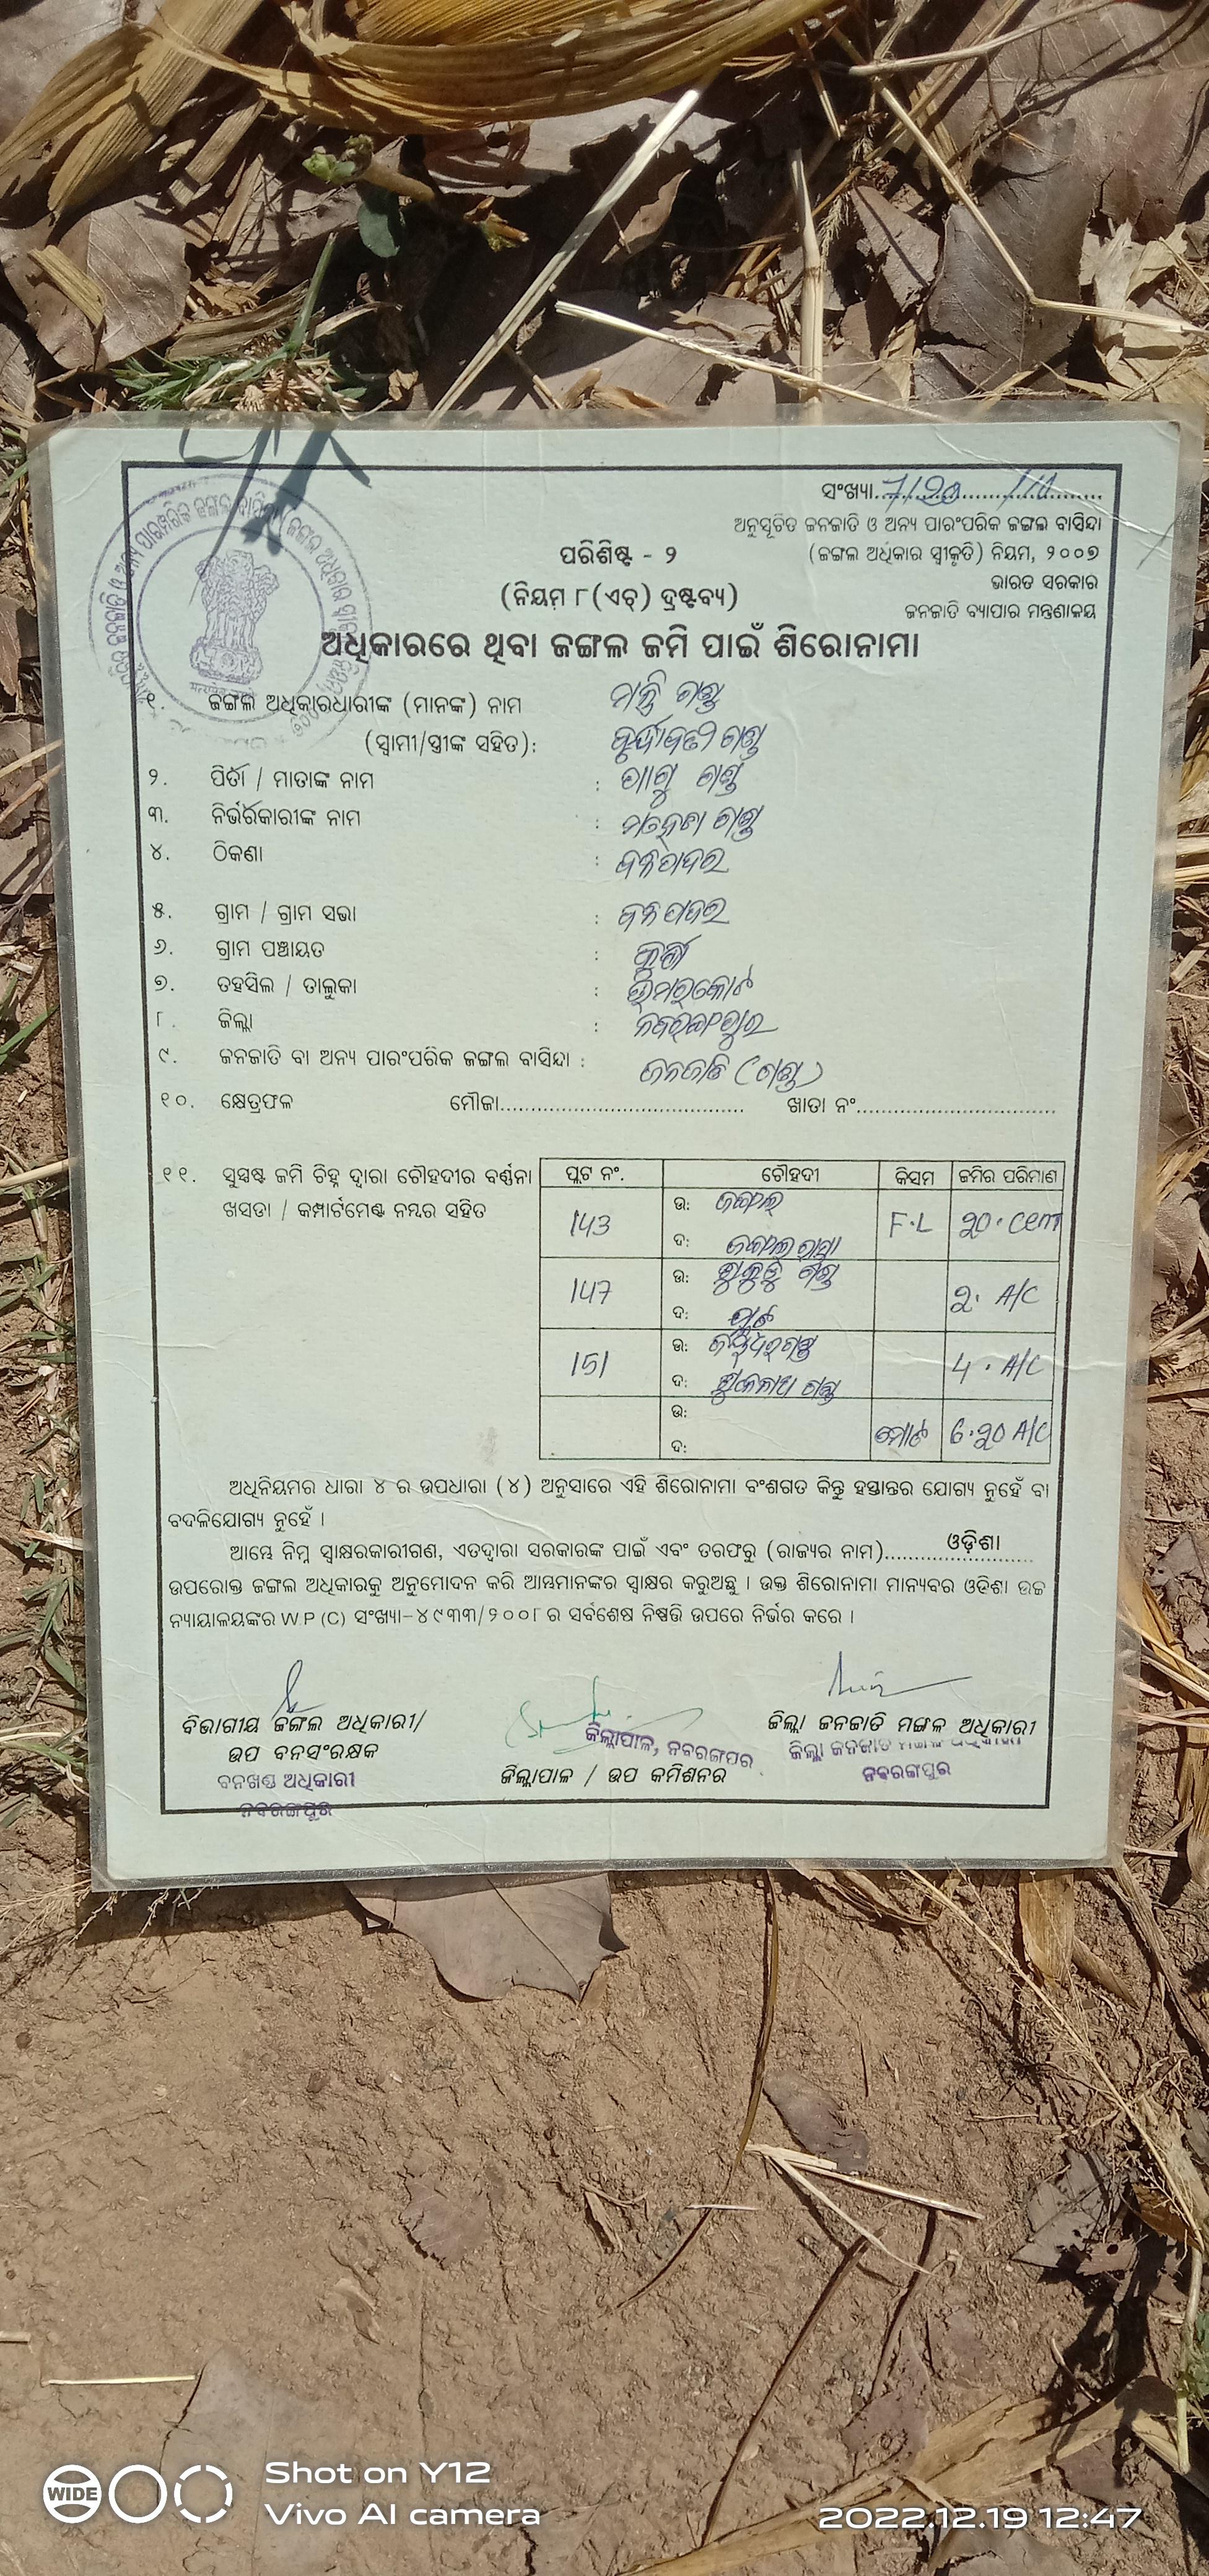 ସଂଖ୍ୟା
ଅନୁସୂଚିତ ଜନଜାତି ଓ ଅନ୍ୟ ପାରଂପରିକ ଜଙ୍ଗଲ ବାସିନ୍ଦା
(ଜଙ୍ଗଲ ଅଧିକାର ସ୍ୱୀକୃତି) ନିୟମ, ୨୦୦୭
ଭାରତ ସରକାର
ଜନଜାତି ବ୍ୟାପାର ମନ୍ତ୍ରଣାଳୟ
ପରିଶିଷ୍ଟ - ୨
(ନିୟମ ୮(ଏଚ୍) ଦ୍ରଷ୍ଟବ୍ୟ)
ଅଧିକାରରେ ଥିବା ଜଙ୍ଗଲ ଜମି ପାଇଁ ଶିରୋନାମା
୧. ଜଙ୍ଗଲ ଅଧିକାରଧାରୀଙ୍କ (ମାନଙ୍କ) ନାମ ଗଣ୍ଡ
(ସ୍ୱାମୀ/ସ୍ତ୍ରୀଙ୍କ ସହିତ): ଗଣ୍ଡ
୨. ପିତା / ମାତାଙ୍କ ନାମ : ଗଣ୍ଡ
୩. ନିର୍ଭରକାରୀଙ୍କ ନାମ : ଗଣ୍ଡ
୪. ଠିକଣା :
୫. ଗ୍ରାମ / ଗ୍ରାମ ସଭା :
୬. ଗ୍ରାମ ପଞ୍ଚାୟତ :
୭. ତହସିଲ / ତାଲୁକା : ଉମରକୋଟ
୮. ଜିଲ୍ଲା : ନବରଙ୍ଗପୁର
୯. ଜନଜାତି ବା ଅନ୍ୟ ପାରଂପରିକ ଜଙ୍ଗଲ ବାସିନ୍ଦା : ଜନଜାତି (ଗଣ୍ଡ)
୧୦. କ୍ଷେତ୍ରଫଳ ମୌଜା ଖାତା ନଂ
୧୧. ସୁସ୍ପଷ୍ଟ ଜମି ଚିହ୍ନ ଦ୍ୱାରା ଚୌହଦୀର ବର୍ଣ୍ଣନା
ଖସଡା / କମ୍ପାର୍ଟମେଣ୍ଟ ନମ୍ବର ସହିତ
ପ୍ଲଟ ନଂ. ଚୌହଦୀ କିସମ ଜମିର ପରିମାଣ
143 ଉ: ଜଙ୍ଗଲ F.L ୨୦. cent
ଦ: ଜଙ୍ଗଲ ରାସ୍ତା
147 ଉ: ଗଣ୍ଡ ୨. A/C
ଦ:
151 ଉ: 4. A/C
ଦ: ଗଣ୍ଡ
ଉ: ମୋଟ 6.୨0 A/C
ଦ:
ଅଧିନିୟମର ଧାରା ୪ ର ଉପଧାରା (୪) ଅନୁସାରେ ଏହି ଶିରୋନାମା ବଂଶଗତ କିନ୍ତୁ ହସ୍ତାନ୍ତର ଯୋଗ୍ୟ ନୁହେଁ ବା
ବଦଳିଯୋଗ୍ୟ ନୁହେଁ ।
ଆମ୍ଭେ ନିମ୍ନ ସ୍ୱାକ୍ଷରକାରୀଗଣ, ଏତଦ୍ୱାରା ସରକାରଙ୍କ ପାଇଁ ଏବଂ ତରଫରୁ (ରାଜ୍ୟର ନାମ) ଓଡ଼ିଶା
ଉପରୋକ୍ତ ଜଙ୍ଗଲ ଅଧିକାରକୁ ଅନୁମୋଦନ କରି ଆମ୍ଭମାନଙ୍କର ସ୍ୱାକ୍ଷର କରୁଅଛୁ । ଉକ୍ତ ଶିରୋନାମା ମାନ୍ୟବର ଓଡିଶା ଉଚ୍ଚ
ନ୍ୟାୟାଳୟଙ୍କର W.P (C) ସଂଖ୍ୟା-୪୯୩୩/୨୦୦୮ ର ସର୍ବଶେଷ ନିଷ୍ପତ୍ତି ଉପରେ ନିର୍ଭର କରେ ।
ବିଭାଗୀୟ ଜଙ୍ଗଲ ଅଧିକାରୀ/
ଉପ ବନସଂରକ୍ଷକ
ବନଖଣ୍ଡ ଅଧିକାରୀ
ନବରଙ୍ଗପୁର
ଜିଲ୍ଲାପାଳ, ନବରଙ୍ଗପୁର
ଜିଲ୍ଲାପାଳ / ଉପ କମିଶନର
ଜିଲ୍ଲା ଜନଜାତି ମଙ୍ଗଳ ଅଧିକାରୀ
ଜିଲ୍ଲା ଜନଜାତି ମଙ୍ଗଳ ଅଧିକାରୀ
ନବରଙ୍ଗପୁର
WIDE
Shot on Y12
Vivo AI camera
2022.12.19 12:47